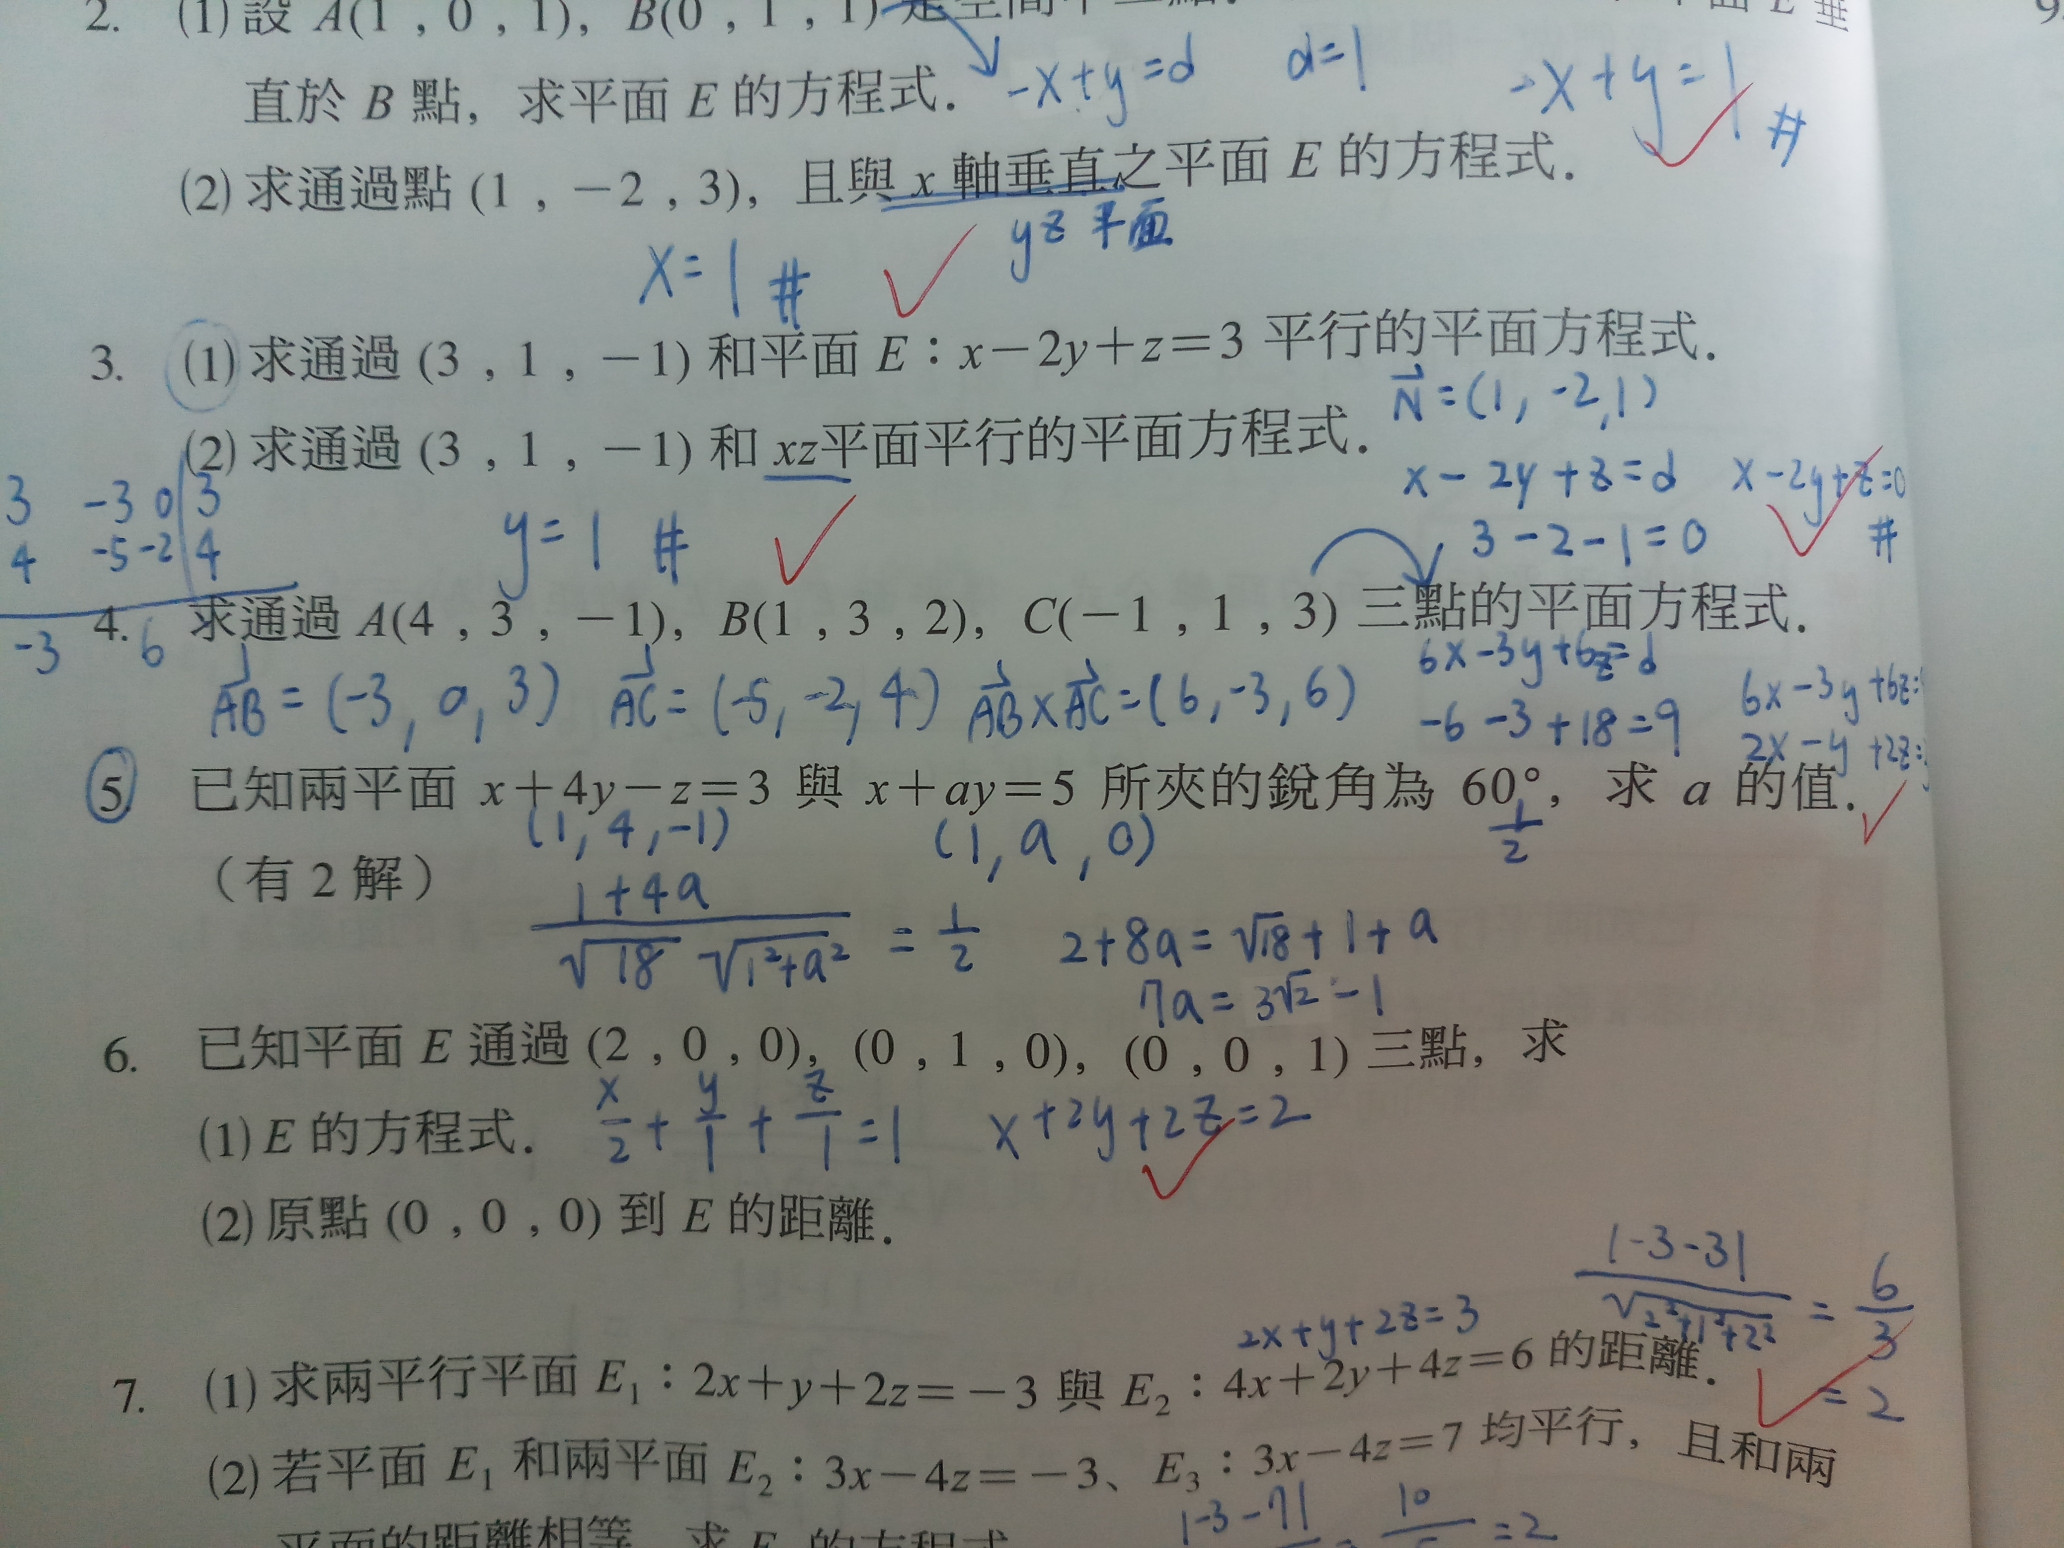 2. (1) 設 A(1 , 0 , 1), B(0 , 1 , 1)
直於 B 點，求平面 E 的方程式．
-x+y=d d=1 -x+y=1 #
(2) 求通過點 (1 , －2 , 3)，且與 x 軸垂直之平面 E 的方程式．
yz 平面
x=1 #
3. (1) 求通過 (3 , 1 , －1) 和平面 E：x－2y＋z＝3 平行的平面方程式．
N=(1, -2, 1)
(2) 求通過 (3 , 1 , －1) 和 xz平面平行的平面方程式．
x-2y+z=d x-2y+z=0
3-2-1=0 #
y=1 #
3 -3 0 3
4 -5 -2 4
-3 6
4. 求通過 A(4 , 3 , －1), B(1 , 3 , 2), C(－1 , 1 , 3) 三點的平面方程式．
AB=(-3, 0, 3) AC=(-5, -2, 4) AB×AC=(6, -3, 6)
6x-3y+6z=d
-6-3+18=9
6x-3y+6z=
2x-y+2z=
5. 已知兩平面 x＋4y－z＝3 與 x＋ay＝5 所夾的銳角為 60°，求 a 的值．
(1, 4, -1) (1, a, 0) 1/2
（有 2 解）
1+4a/√18 √1²+a² = 1/2 2+8a=√18+1+a
7a=3√2-1
6. 已知平面 E 通過 (2 , 0 , 0), (0 , 1 , 0), (0 , 0 , 1) 三點，求
(1) E 的方程式．
x/2+y/1+z/1=1 x+2y+2z=2
(2) 原點 (0 , 0 , 0) 到 E 的距離．
|-3-3|/√2²+1²+2² = 6/3
=2
2x+y+2z=3
7. (1) 求兩平行平面 E₁：2x＋y＋2z＝－3 與 E₂：4x＋2y＋4z＝6 的距離．
(2) 若平面 E₁ 和兩平面 E₂：3x－4z＝－3、E₃：3x－4z＝7 均平行，且和兩
平面的距離相等，求 E 的方程式
|-3-7| = 10 =2